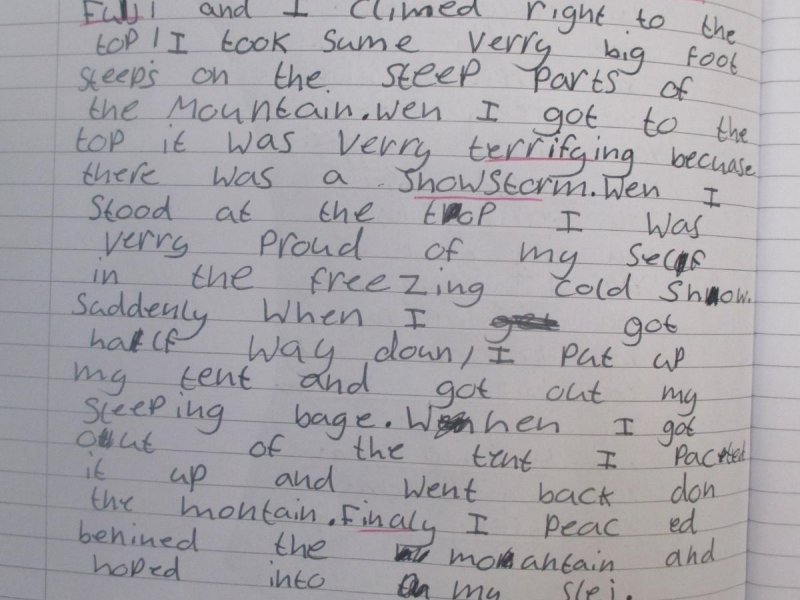 Fuji and I climed right to the
top! I took sume verry big foot
steeps on the steep parts of
the Mountain. wen I got to the
top it was verry terrifying becuase
there was a Snowstorm. Wen I
stood at the top I was
verry proud of my self
in the freezing cold Snow.
Suddenly when I got
half way down, I put up
my tent and got out my
sleeping bage. When I got
out of the tent I packed
it up and went back don
the montain. Finaly I peac ed
behined the moantain and
hoped into my slej.